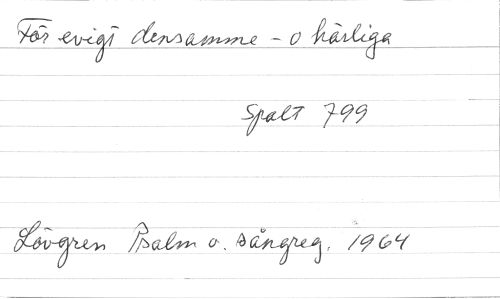 För evigt densamme - o härliga
Spalt 799
Lövgren Psalm o. sångreg. 1964